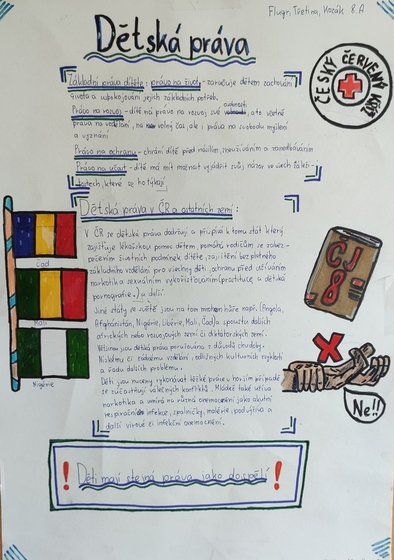 Flugr, Tretina, Kozák 8.A
Dětská práva
ČESKÝ ČERVENÝ KŘÍŽ
Základní práva dítěte: právo na život - zaručuje dětem zachování
života a uspokojování jejich základních potřeb.
osobnosti
Právo na rozvoj - dítě má právo na rozvoj své, a to včetně
práva na vzdělání, na volný čas, ale i práva na svobodu myšlení
a vyznání
Právo na ochranu - chrání dítě před násilím, zneužíváním a zanedbáváním
Právo na účast - dítě má mít možnost vyjádřit svůj názor ve všech zálež-
itostech, které se ho týkají
Dětská práva v ČR a ostatních zemí:
V ČR se dětská práva dodržují a přispívá k tomu stát který
zajišťuje lékařskou pomoc dětem, pomáhá rodičům se zabez-
pečením životních podmínek dítěte, zajištění bezplatného
základního vzdělání pro všechny děti, ochranu před užíváním
narkotik a sexuálním vykořisťováním (prostituce a dětská
pornografie) a další
Jiné státy ve světě jsou na tom mnohem hůře např. (Angola,
Afghánistán, Nigérie, Libérie, Mali, Čad) a spoustu dalších
afrických nebo rozvojových zemí či diktátorských zemí.
Většinou jsou dětská práva porušována z důvodů chudoby.
Nízkému či žádnému vzdělání, odlišných kulturních zvyklostí
a řadu dalších problémů.
Děti jsou nuceny vykonávat těžké práce v horším případě
se zúčastňují válečných konfliktů. Mládež také užívá
narkotika a umírá na různá onemocnění jako akutní
respirační infekce, spalničky, malárie, podvýživa a
další virové či infekční onemocnění.
Čad
Mali
Nigérie
ČJ
8
Ne!!
! Děti mají stejná práva jako dospělí !